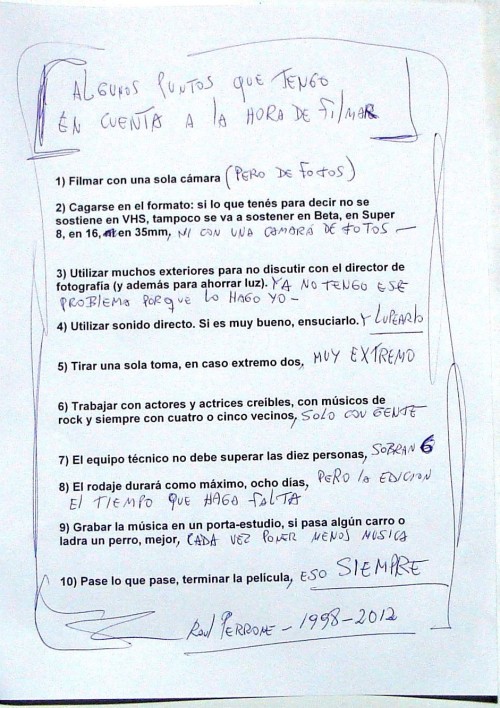 ALGUNOS PUNTOS QUE TENGO
EN CUENTA A LA HORA DE FILMAR
1) Filmar con una sola cámara (PERO DE FOTOS)
2) Cagarse en el formato: si lo que tenés para decir no se
sostiene en VHS, tampoco se va a sostener en Beta, en Super
8, en 16, en 35mm, NI CON UNA CAMARA DE FOTOS —
3) Utilizar muchos exteriores para no discutir con el director de
fotografía (y además para ahorrar luz). YA NO TENGO ESE
PROBLEMA PORQUE LO HAGO YO —
4) Utilizar sonido directo. Si es muy bueno, ensuciarlo. Y LUPEARLO
5) Tirar una sola toma, en caso extremo dos, MUY EXTREMO
6) Trabajar con actores y actrices creíbles, con músicos de
rock y siempre con cuatro o cinco vecinos, SOLO CON GENTE
7) El equipo técnico no debe superar las diez personas, SOBRAN 6
8) El rodaje durará como máximo, ocho días, PERO LA EDICION
EL TIEMPO QUE HAGA FALTA
9) Grabar la música en un porta-estudio, si pasa algún carro o
ladra un perro, mejor, CADA VEZ PONER MENOS MUSICA
10) Pase lo que pase, terminar la película, ESO SIEMPRE
Raul PERRONE — 1998-2012